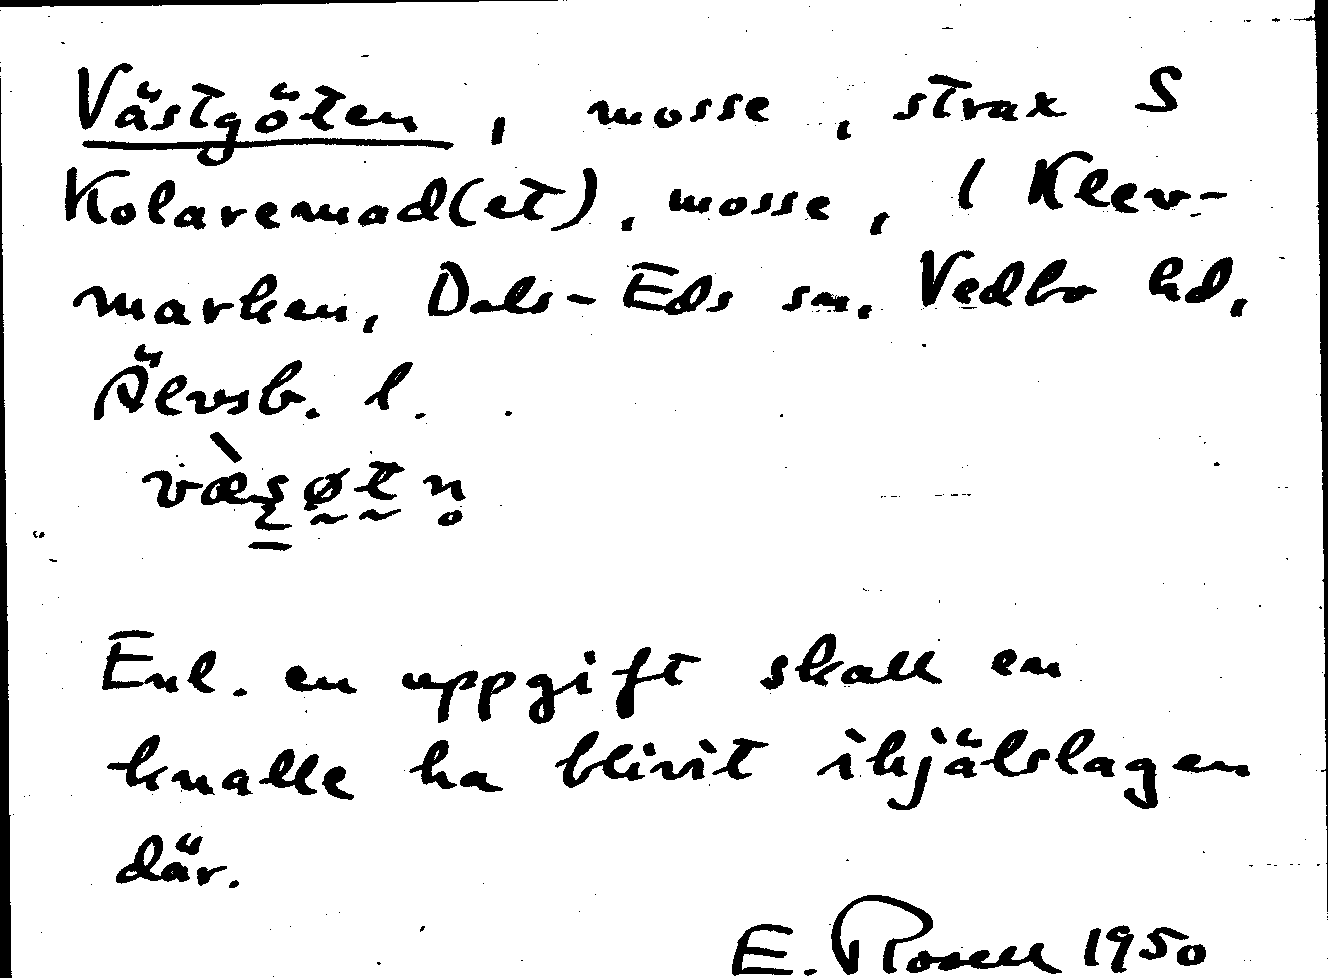 Västgöten, mosse, strax S
Kolaremad(et), mosse, i Klev-
marken, Dals-Eds sn. Vedbo hd,
Älvsb. l.
væ̀s̱ø̰t̰n̥
Enl. en uppgift skall en
knalle ha blivit ihjälslagen
där.
E. Rosell 1950